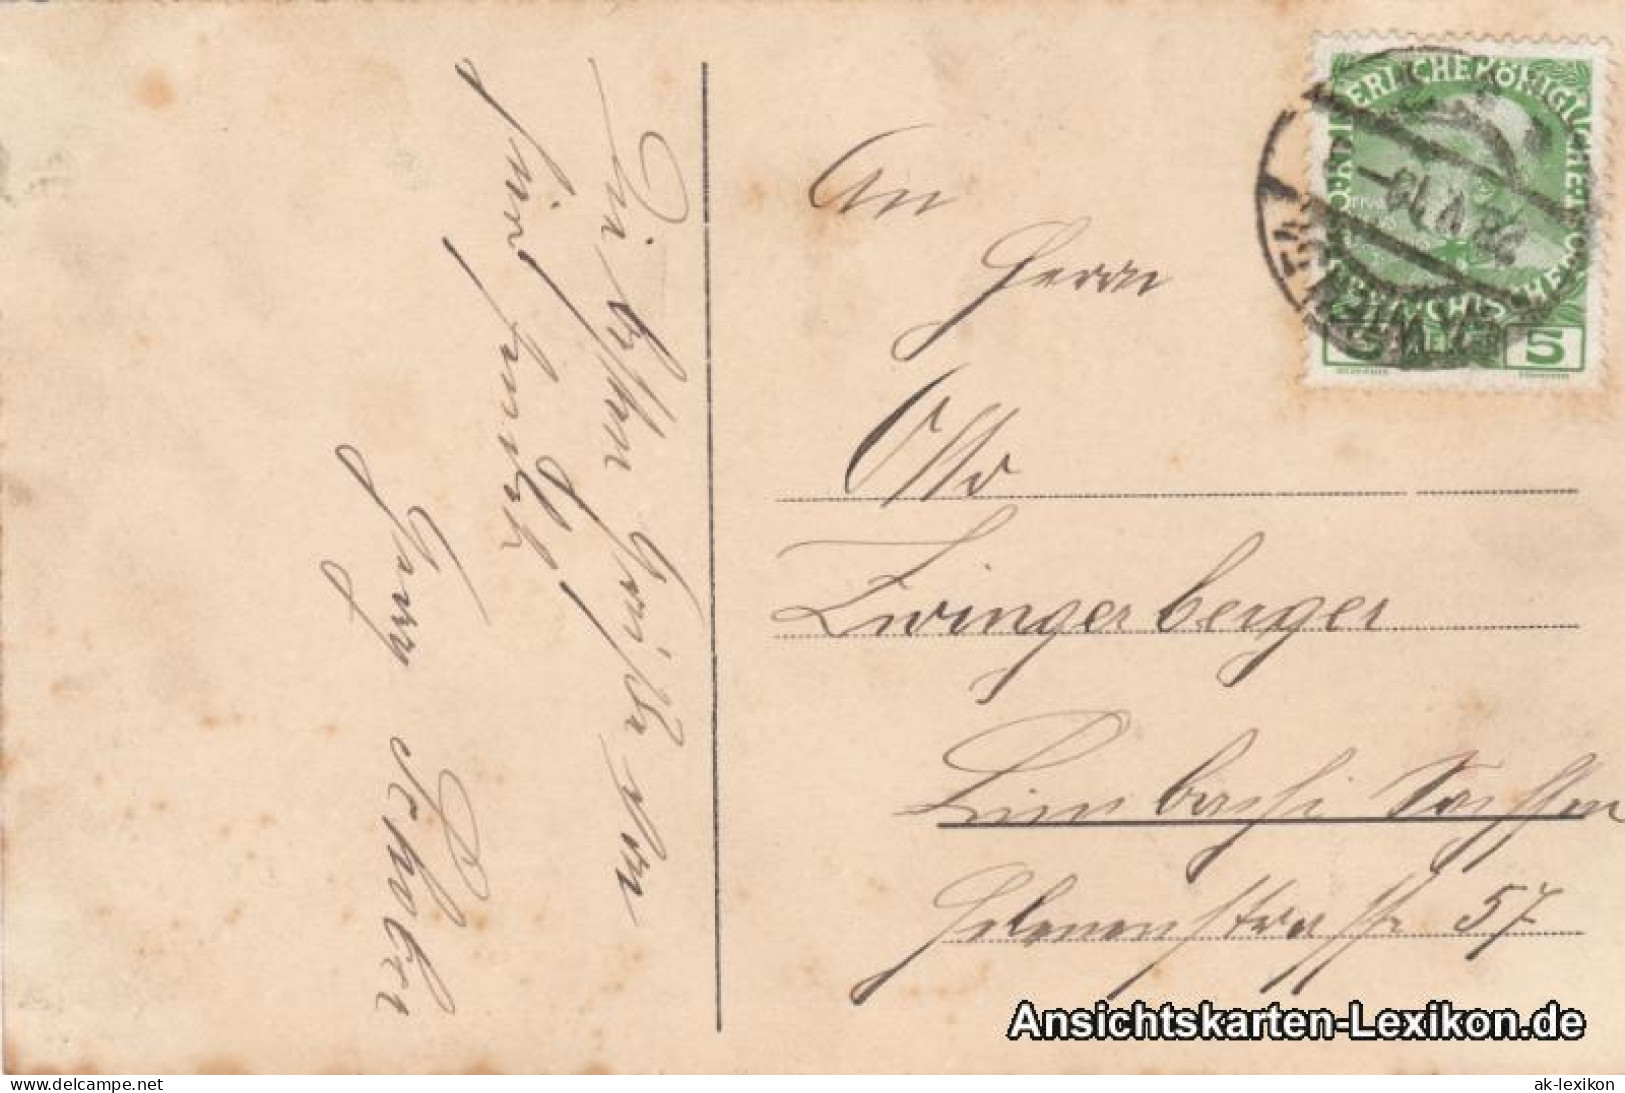 Die besten Grüße von
hier sendet
Schuber
An
Herrn
Otto
Zwingerberger
Limbach Sachsen
Helenenstrasse 57
KAISERLICHE KÖNIGLICHE ÖSTERREICHISCHE POST
5
WIEN
Ansichtskarten-Lexikon.de
www.delcampe.net
ak-lexikon